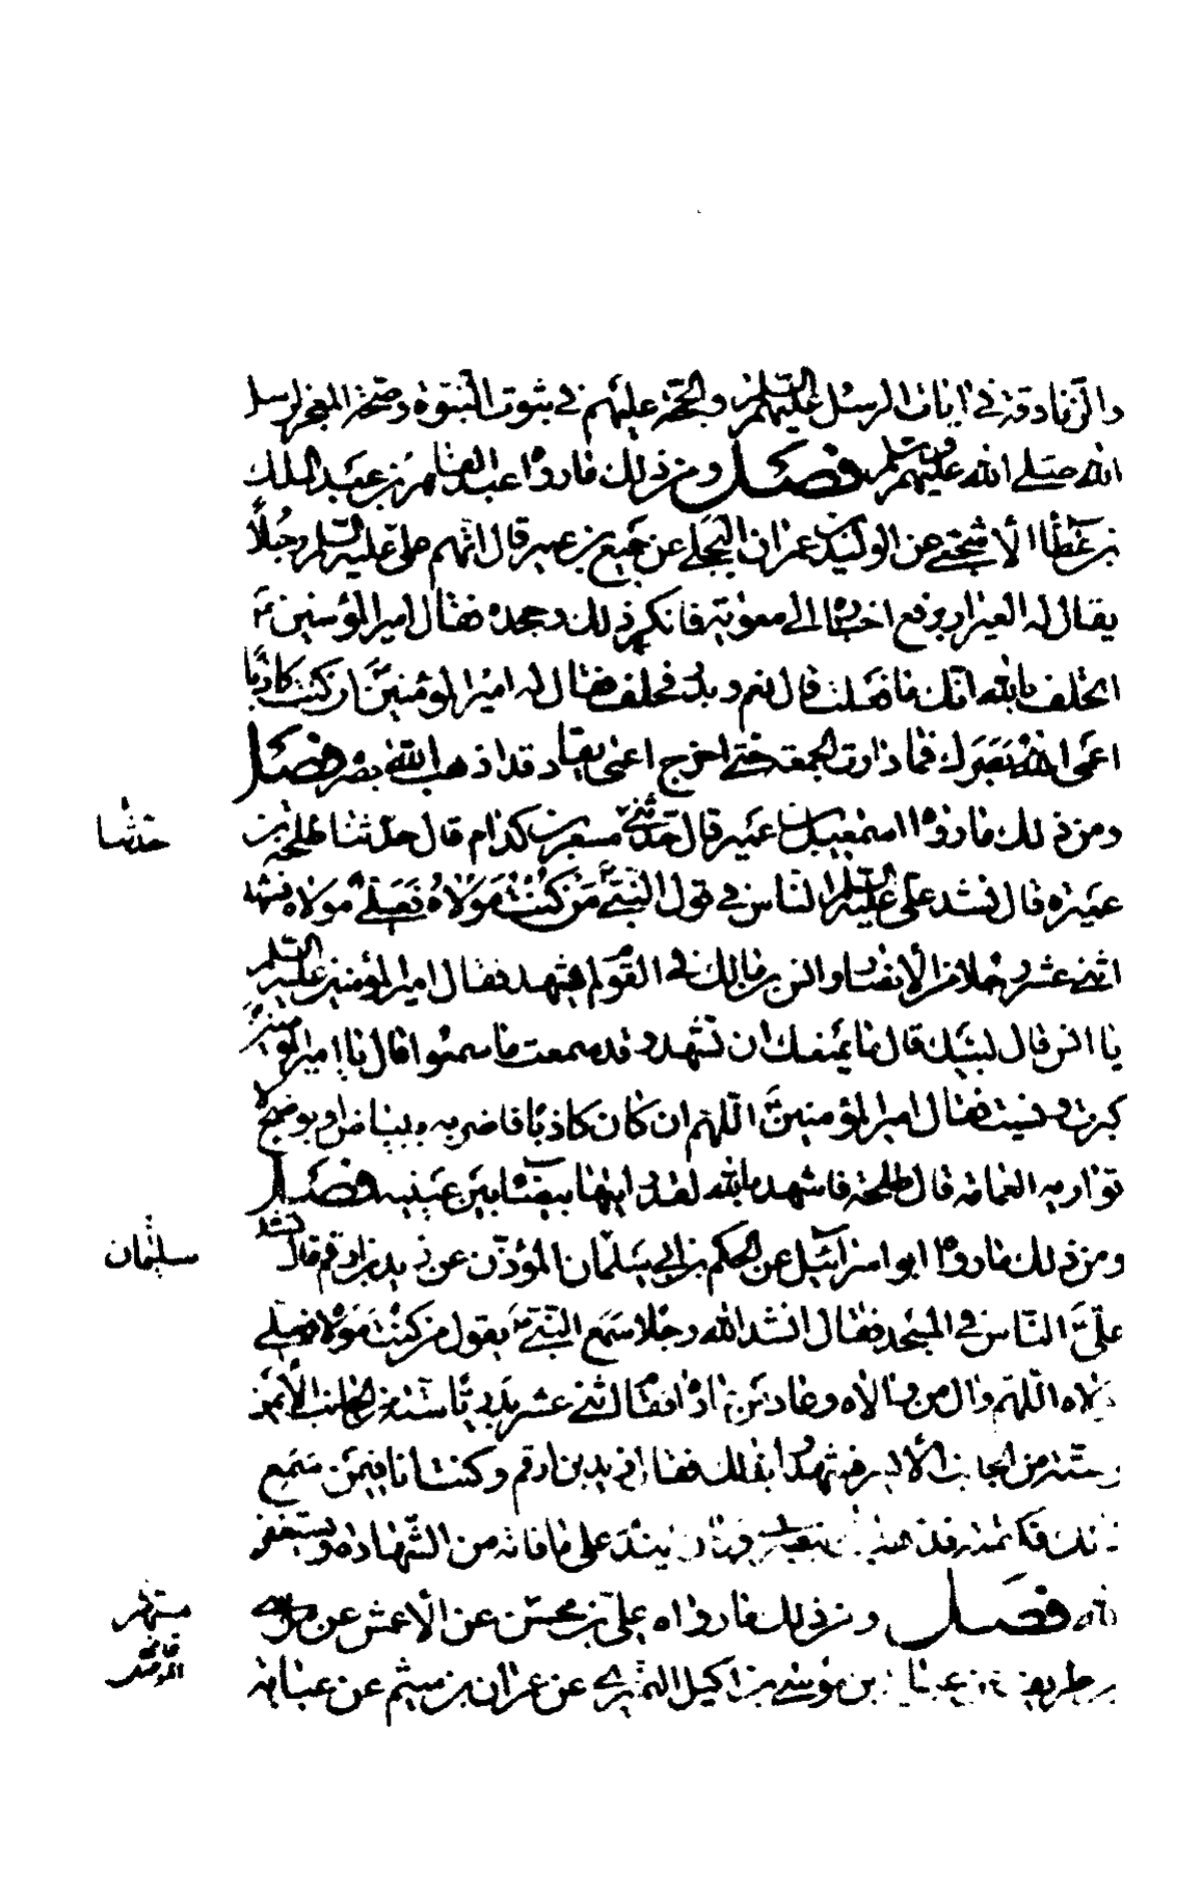 والزنادقة في آيات الرسل عليهم السلم والحجة عليهم في ثبوت النبوة وصحة المعجز لرسل
الله صلى الله عليهم وسلم فصل ومن ذلك ما رووا عبد القاهر بن عبد الملك
بن عطاء الأشجعي عن الوليد بن عمران البجلي عن جميع بن عمير قال اتهم علي عليه السلم رجلًا
يقال له العيزار برفع اخباره الى معوية فانكر ذلك وجحده فقال امير المؤمنين ع
اتحلف بالله انك ما فعلت قال نعم وبدر فحلف فقال له امير المؤمنين ع ان كنت كاذبًا
اعمى الله بصرك فما دارت الجمعة حتى اخرج اعمى يقاد قد اذهب الله بصره فصل
ومن ذلك ما رووه اسمعيل بن عمير قال حدثني مسعر بن كدام قال حدثنا طلحة بن
حدثنا
عميرة قال نشد علي عليه السلم الناس في قول النبي ص من كنت مولاه فعلي مولاه فشهد
اثنى عشر رجلا من الأنصار وانس بن مالك في القوم لم يشهد فقال امير المؤمنين عليه السلم
يا انس قال لبيك قال ما يمنعك ان تشهد وقد سمعت ما سمعوا قال يا امير المؤمنين
كبرت ونسيت فقال امير المؤمنين ع اللهم ان كان كاذبًا فاضربه ببياض او بوضح لا
تواريه العمامة قال طلحة فاشهد بالله لقد رايتها بيضاء بين عينيه فصل
ومن ذلك ما رووه ابو اسرائيل عن الحكم بن ابي سلمان المؤذن عن زيد بن ارقم قال نشد
سليمان
علي ع الناس في المسجد فقال انشد الله رجلا سمع النبي ص يقول من كنت مولاه فعلي
مولاه اللهم وال من والاه وعاد من عاداه فقام اثنى عشر بدريًا ستة من الجانب الأيمن
وستة من الجانب الأيسر فشهدوا بذلك فقال زيد بن ارقم وكنت انا فيمن سمع
ذلك فكتمته فذهب الله ببصري وكان يتندم على ما فاته من الشهادة ويستغفر
الله فصل ومن ذلك ما رواه علي بن محسن عن الأعمش عن
مسهر
قاضي الموصل
بن طريف بن موسى بن اكيل النميري عن عمران بن ميثم عن عباية